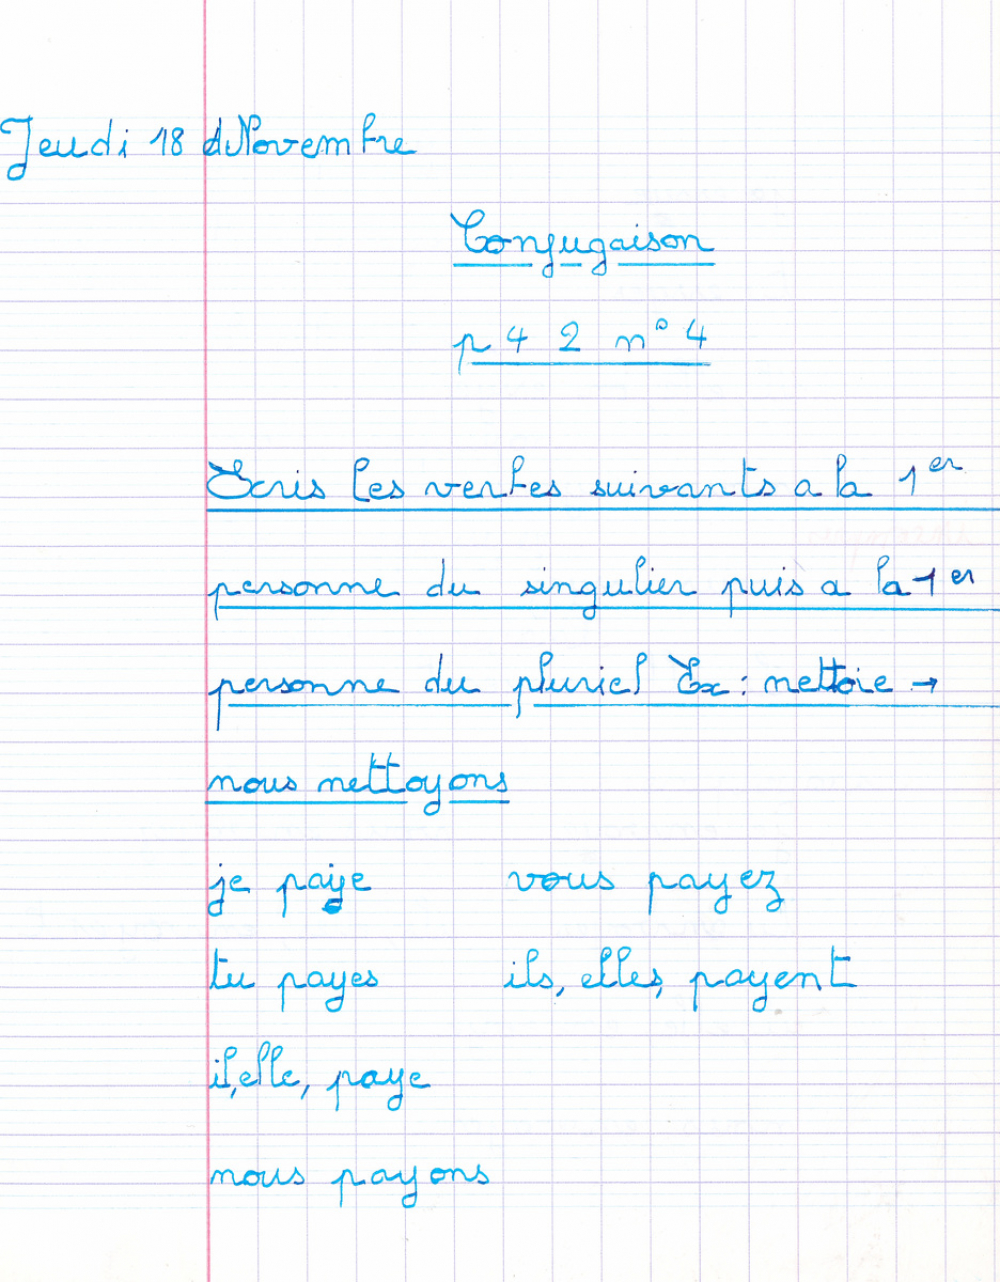 Jeudi 18 Novembre
Conjugaison
p 4 2 n° 4
Ecris les verbes suivants a la 1er
personne du singulier puis a la 1er
personne du pluriel Ex : nettoie →
nous nettoyons
je paye vous payez
tu payes ils, elles, payent
il, elle, paye
nous payons